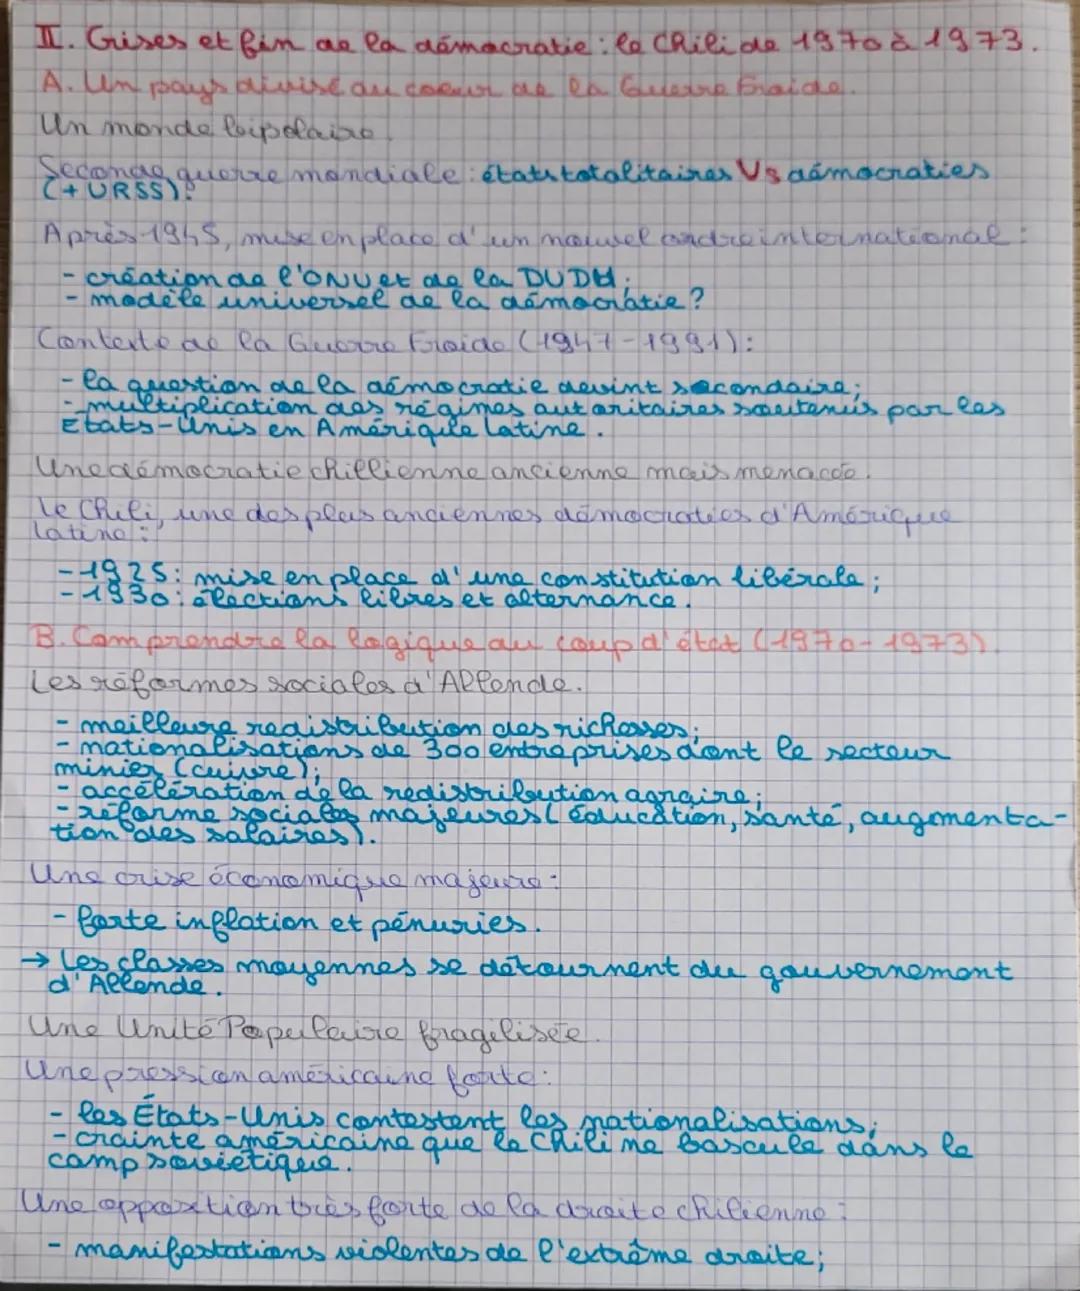 II. Crises et fin de la démocratie : le Chili de 1970 à 1973.
A. Un pays divisé au coeur de la Guerre Froide.
Un monde bipolaire.
Seconde guerre mondiale : états totalitaires Vs démocraties
(+ URSS).
Après 1945, mise en place d'un nouvel ordre international :
- création de l'ONU et de la DUDH ;
- modèle universel de la démocratie ?
Contexte de la Guerre Froide (1947-1991) :
- la question de la démocratie devint secondaire ;
- multiplication des régimes autoritaires soutenus par les
États-Unis en Amérique latine.
Une démocratie chillienne ancienne mais menacée.
Le Chili, une des plus anciennes démocraties d'Amérique
latine :
- 1925 : mise en place d'une constitution libérale ;
- 1930 : élections libres et alternance.
B. Comprendre la logique du coup d'état (1970-1973).
Les réformes sociales d'Allende.
- meilleure redistribution des richesses ;
- nationalisations de 300 entreprises dont le secteur
minier (cuivre) ;
- accélération de la redistribution agraire ;
- réforme sociales majeures (éducation, santé, augmenta-
tion des salaires).
Une crise économique majeure :
- forte inflation et pénuries.
→ Les classes moyennes se détournent du gouvernement
d'Allende.
Une Unité Populaire fragilisée.
Une pression américaine forte :
- les États-Unis contestent les nationalisations ;
- crainte américaine que le Chili ne bascule dans le
camp soviétique.
Une opposition très forte de la droite chilienne :
- manifestations violentes de l'extrême droite ;